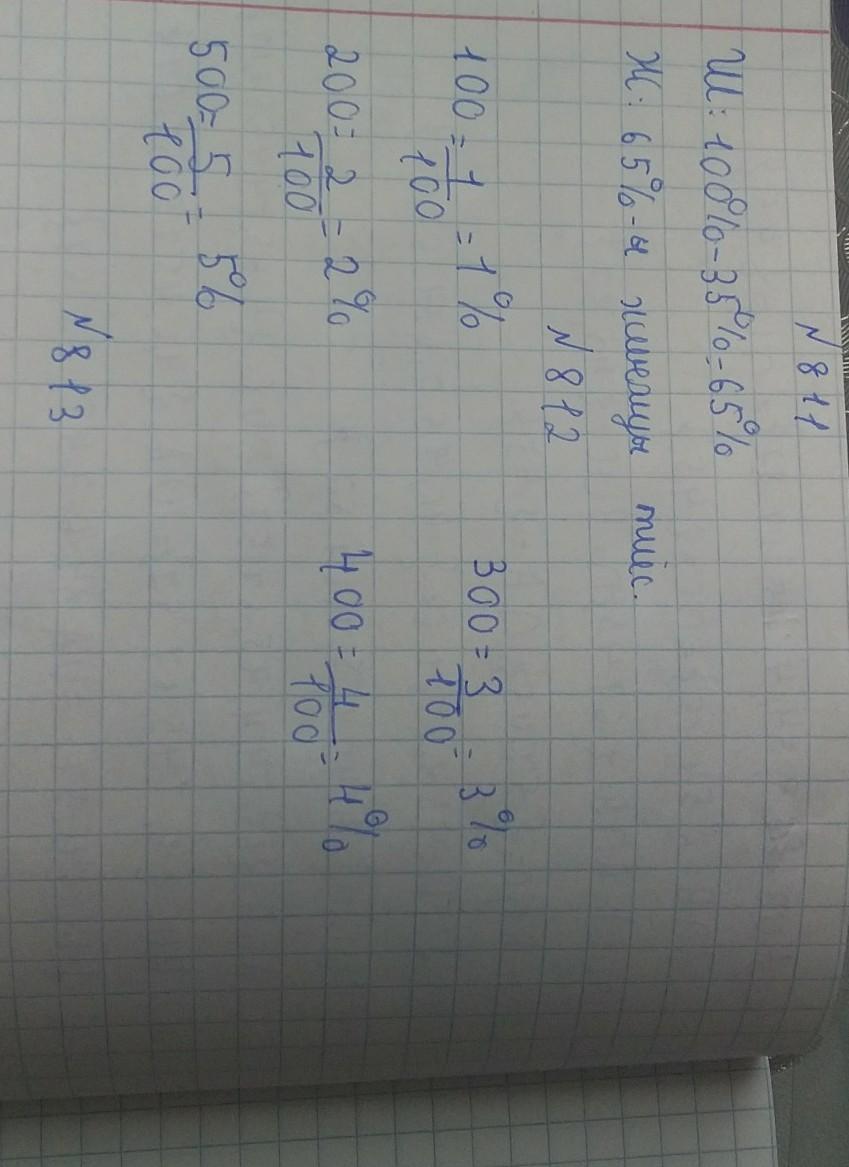 N 811
Ш: 100%-35%=65%
Ж: 65%-ы жинаșуы тиіс.
N 812
100 = 1/100 = 1%
300 = 3/100 = 3%
200 = 2/100 = 2%
400 = 4/100 = 4%
500 = 5/100 = 5%
N 813